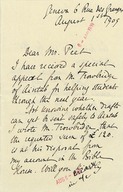 Geneva 6 Rue des Granges
August 1st 1905
Dear Mr. Peet
I have received a special
appeal from Mr Trowbridge
of Aintab for helping students
through the next year.
Not knowing whether drafts
can get to
I wrote Mr Trowbridge that
the required sum of
is at his disposal from
my account in the Bible
House. Will you